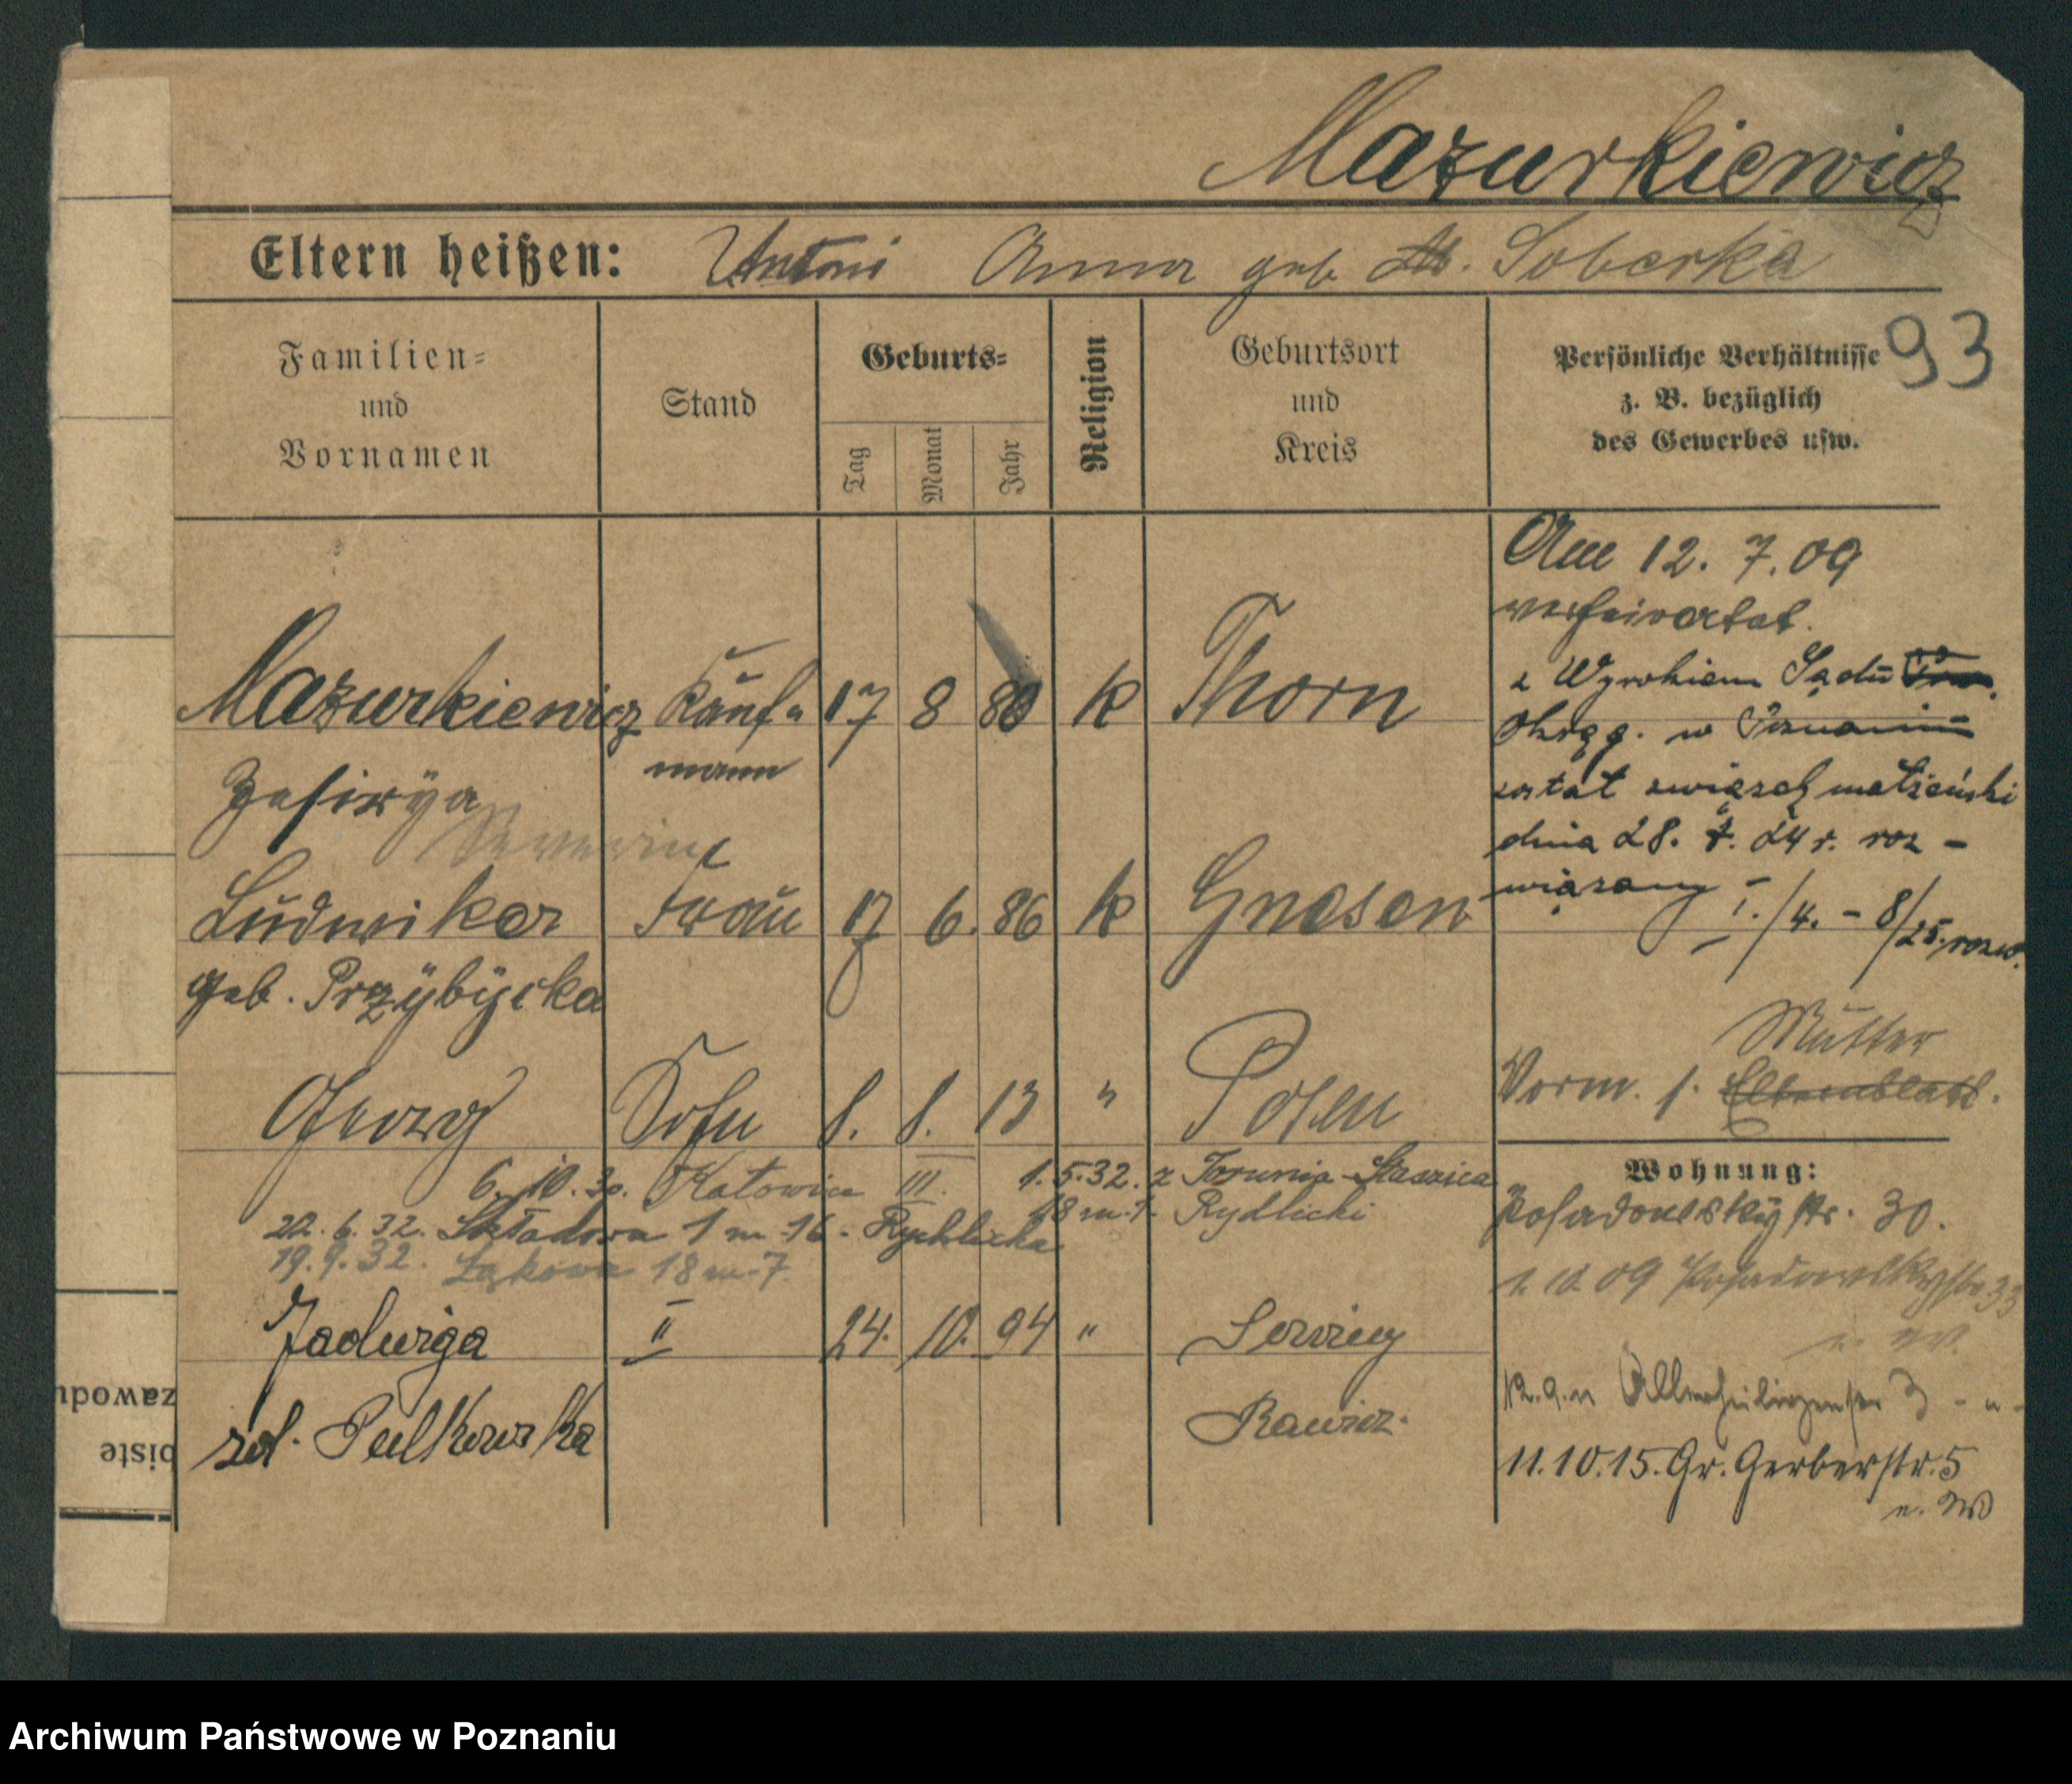 Mazurkiewicz
Eltern heißen: Antoni Anna geb. Soberska
93
Familien-
und
Vornamen
Stand
Geburts-
Tag
Monat
Jahr
Religion
Geburtsort
und
Kreis
Persönliche Verhältnisse
z. B. bezüglich
des Gewerbes usw.
Am 12. 7. 09
verheiratet.
Wyrokiem Sądu
Okręg. w Poznaniu
został związek małżeński
dnia 28. 7. 24 r. roz-
wiązany
I./4. - 8/25. rozw.
Mazurkiewicz Kauf- 17 8 80 k Thorn
mann
Severin
Ludwika Frau 17 6. 86 k Gnesen
geb. Przybycka
Georg Sohn 8. 8. 13 " Posen
Mutter
Vorm. s. Elternblatt.
6. 10. 30. Katowice III. 1. 5. 32. z Torunia Staszica
18 m. 7 Rydlicki
22. 6. 32. Składowa 1 m 16 - Rychlicka
19. 9. 32. Łąkowa 18 m. 7
Jadwiga II 24. 10. 94 "
zd. Pulkowska Rawicz.
Wohnung:
Posadowskystr. 30.
1. 10 09 Posadowskystr 33
Allerheiligenstr 3
11. 10. 15. Gr. Gerberstr. 5
zawodu
biste
Archiwum Państwowe w Poznaniu